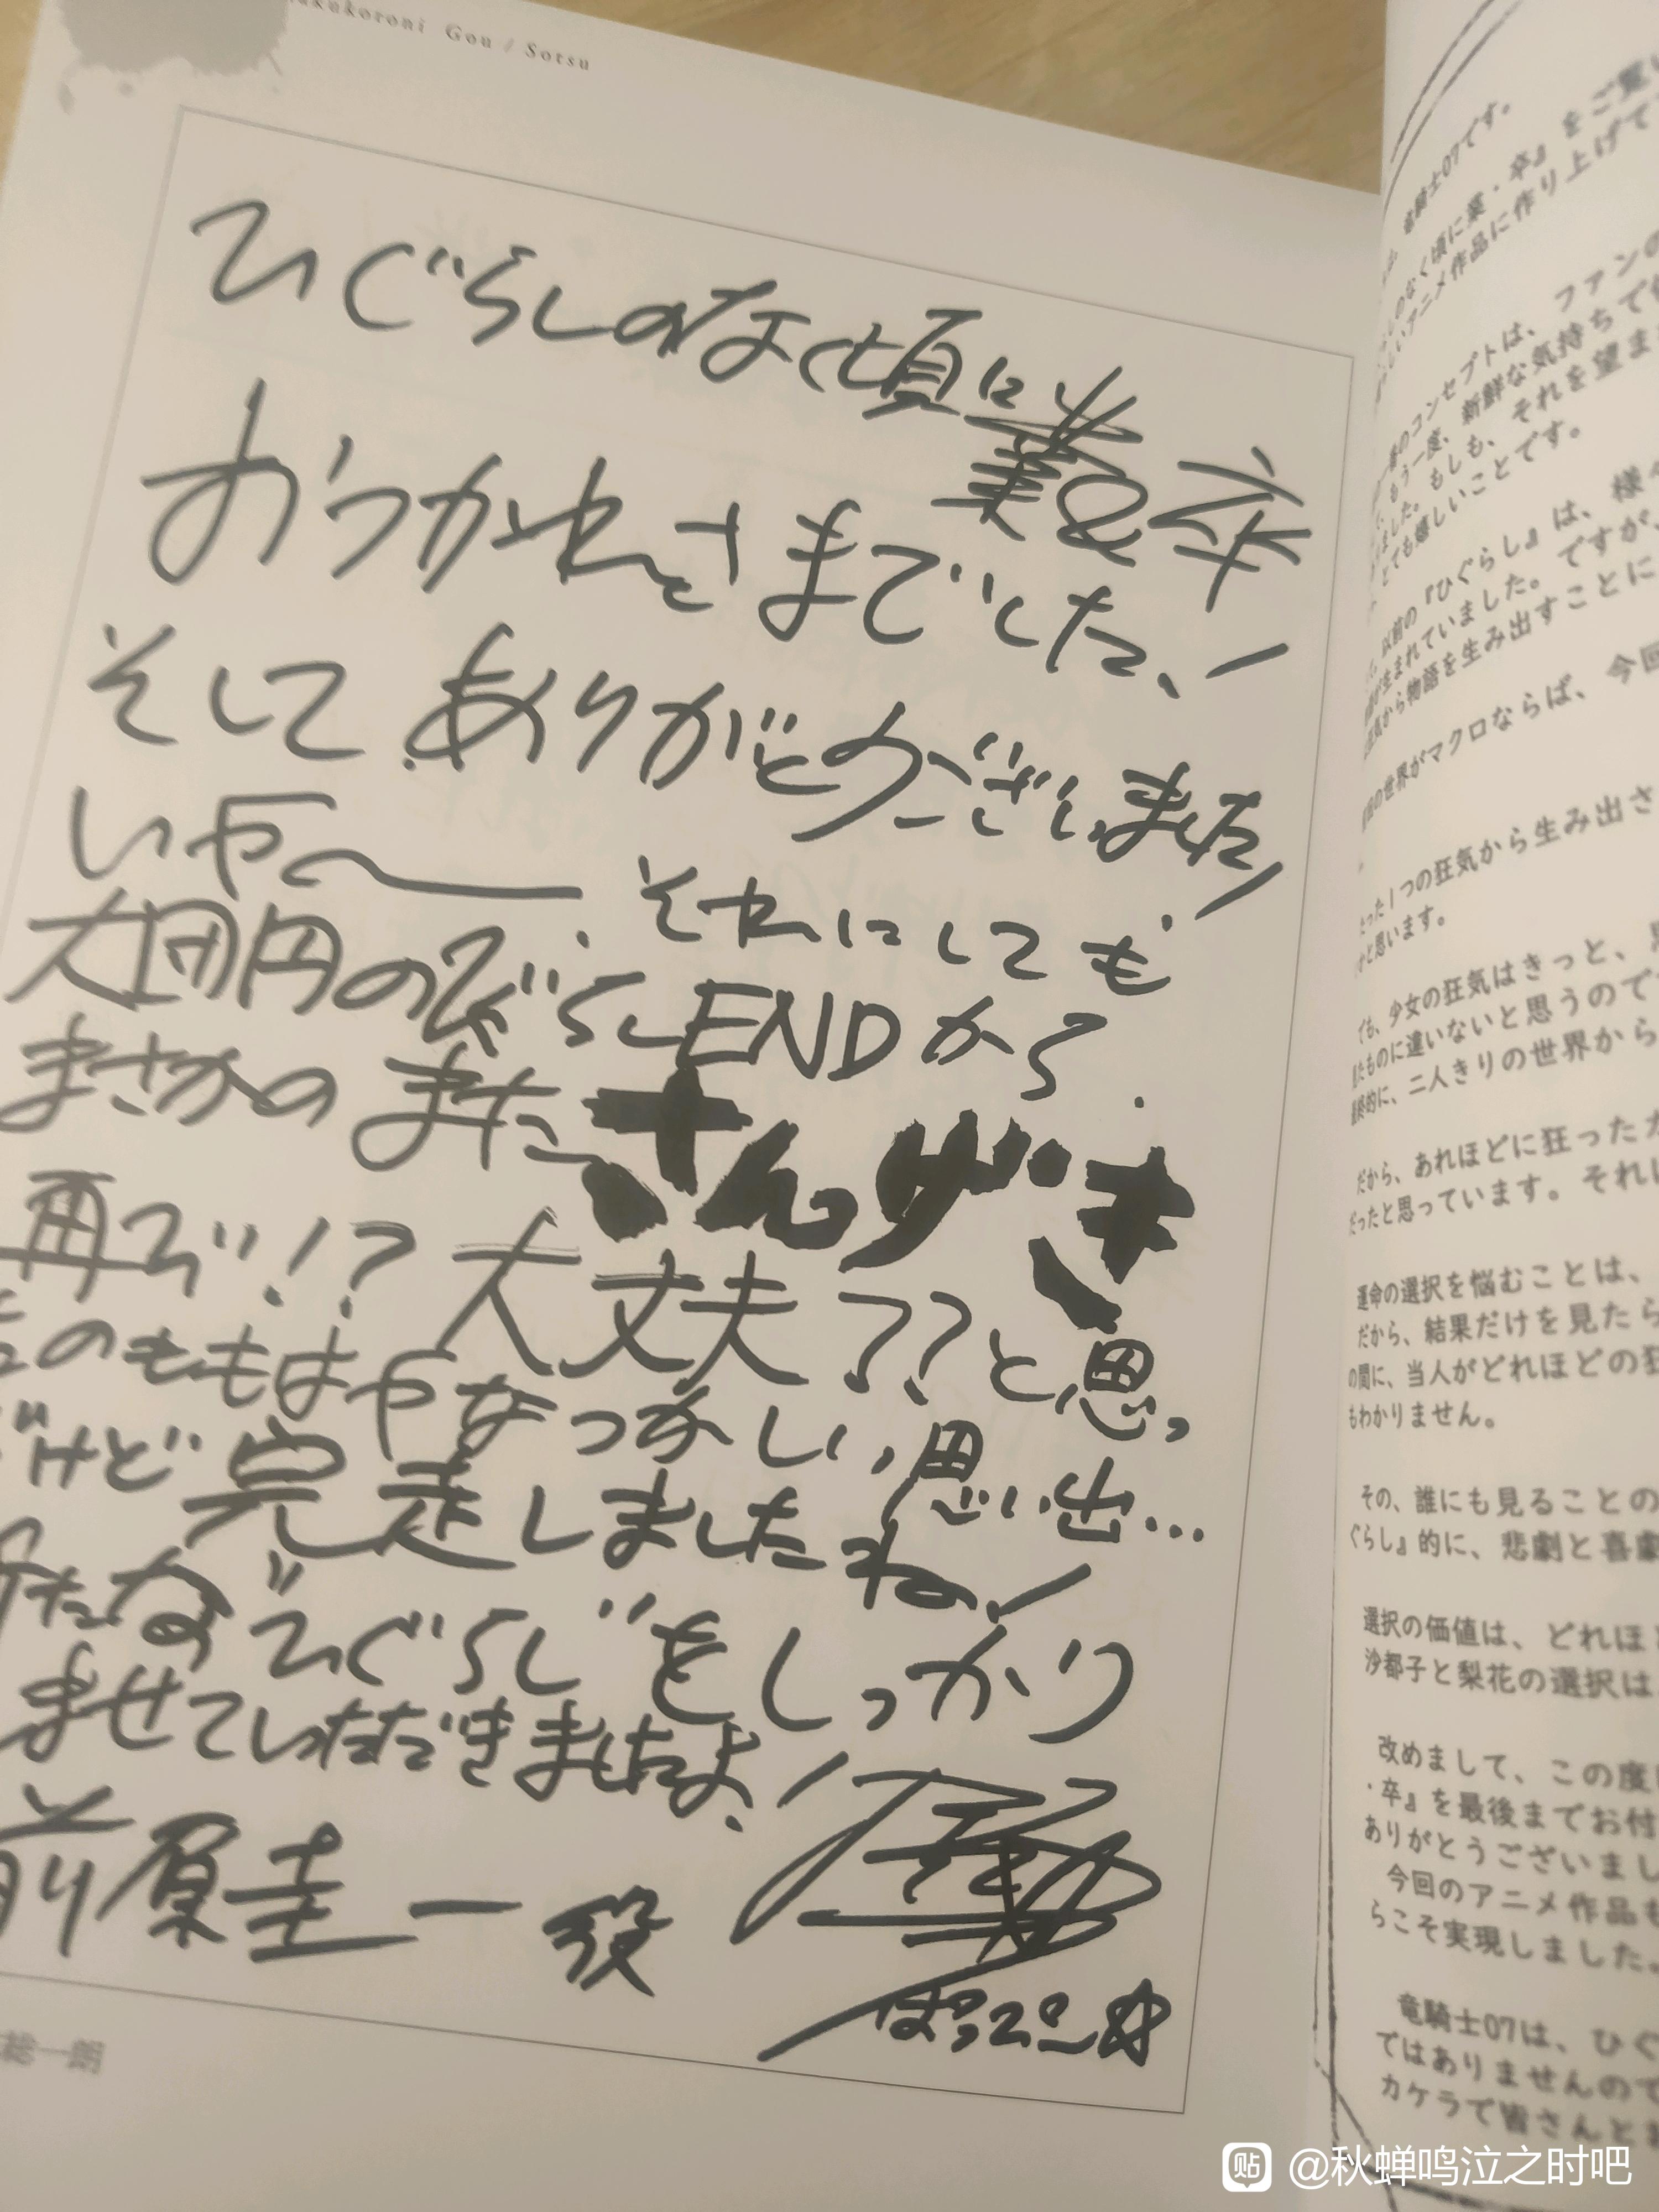 Gou / Sotsu
ひぐらしのなく頃に業&卒
おつかれさまでした、!
そしてありがとうございました
いやー それにしても
大団円のひぐらしENDから
まさかのまたさんげき
再び!?大丈夫??と思っ
のももはやなつかしい思い出…
だけど完走しましたね!
たな"ひぐらし"をしっかり
ませていただきましたよ、!
前原圭一役
ほっしー☆
総一朗
竜騎士07です。
のなく頃に業・卒』をご覧い
しいアニメ作品に作り上げて
のコンセプトは、ファンの
もう一度、新鮮な気持ちで
しました。もしも、それを望ま
とても嬉しいことです。
以前の『ひぐらし』は、様々
が生まれていました。ですが、
狂気から物語を生み出すことに
の世界がマクロならば、今回
たった1つの狂気から生み出さ
かと思います。
でも、少女の狂気はきっと、
たものに違いないと思うのです
最終的に、二人きりの世界から
だから、あれほどに狂ったカ
だったと思っています。それは
運命の選択を悩むことは、
だから、結果だけを見たら
の間に、当人がどれほどの狂
もわかりません。
その、誰にも見ることの
ぐらし』的に、悲劇と喜劇
選択の価値は、どれほど
沙都子と梨花の選択は
改めまして、この度は
・卒』を最後までお付
ありがとうございまし
今回のアニメ作品も
らこそ実現しました。
竜騎士07は、ひぐ
ではありませんので
カケラで皆さんとま
贴 @秋蝉鸣泣之时吧